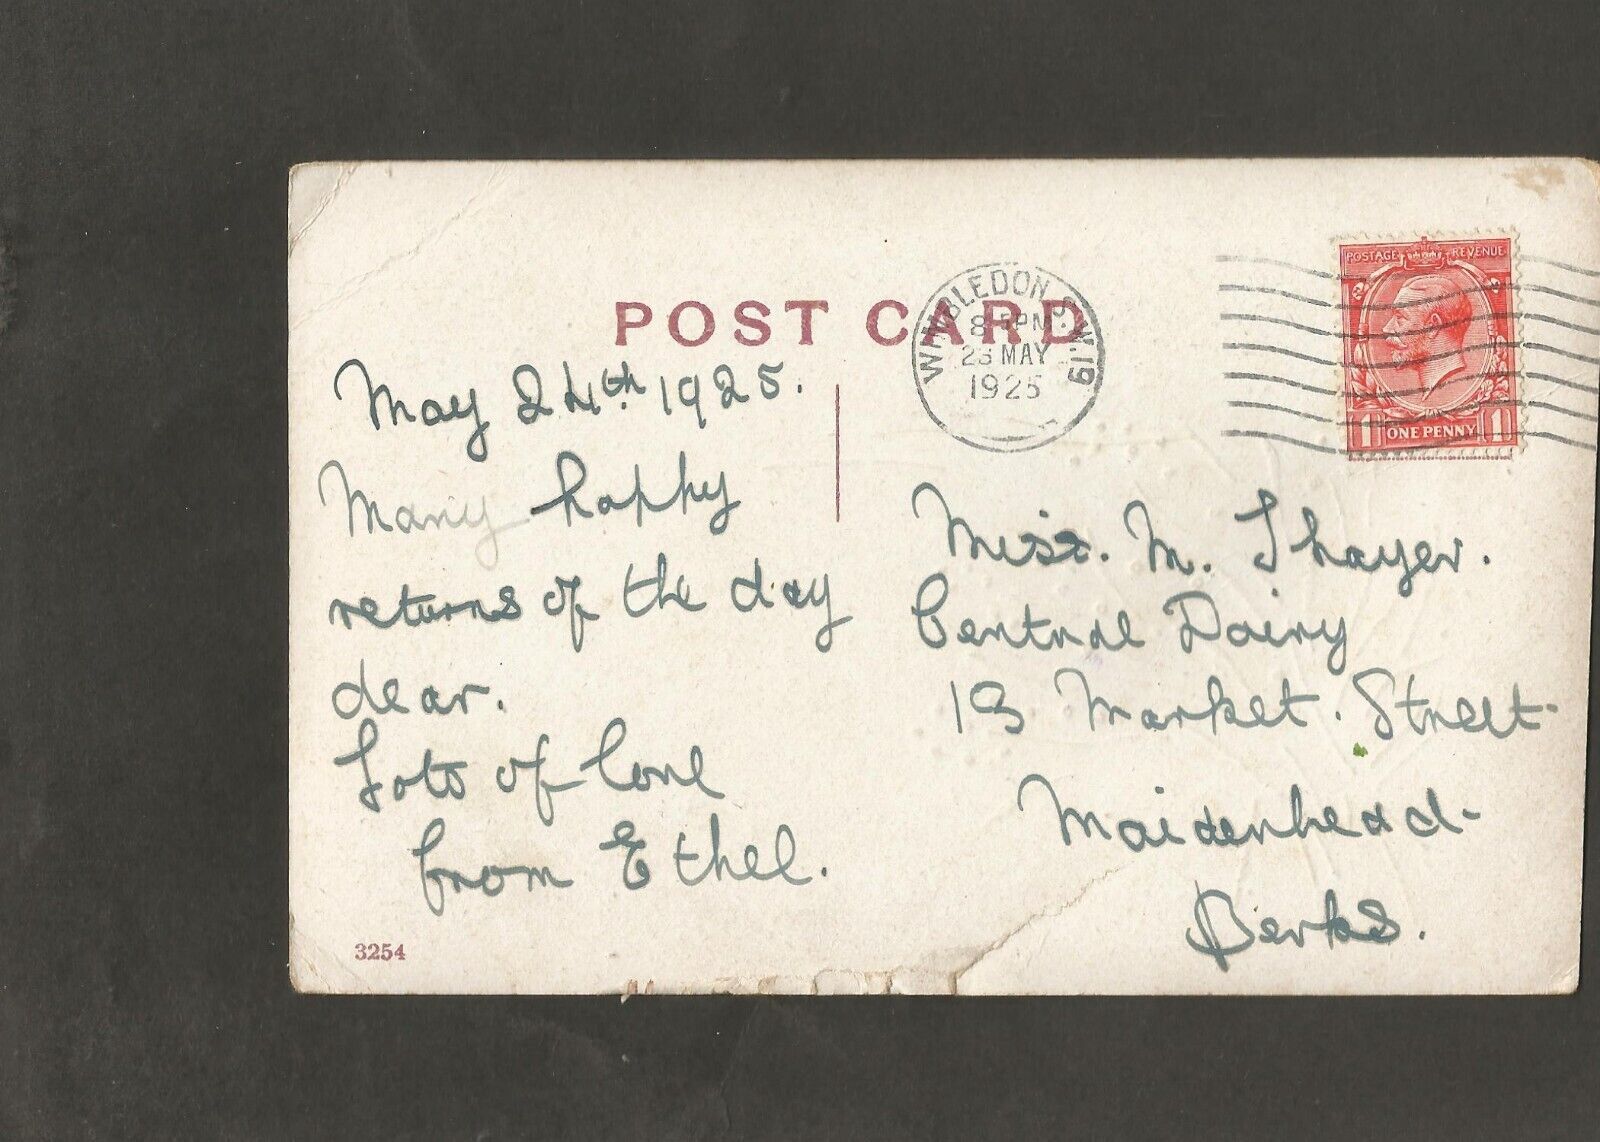 POST CARD
WIMBLEDON S.W.19
PM
MAY
1925
POSTAGE REVENUE
1 ONE PENNY 1
May 24th 1925.
Many happy
returns of the day
dear.
Lots of love
from Ethel.
Miss. M. Thayer.
Central Dairy
Market. Street.
Maidenhead-
Berks.
3254